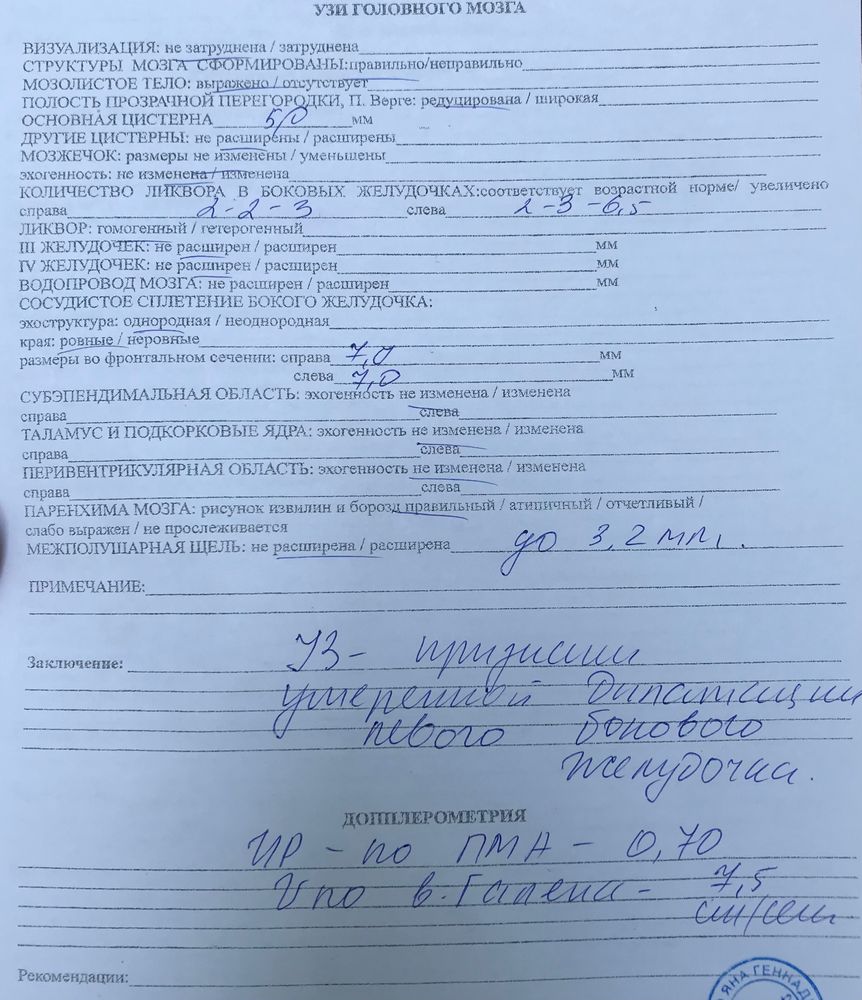 УЗИ ГОЛОВНОГО МОЗГА
ВИЗУАЛИЗАЦИЯ: не затруднена / затруднена
СТРУКТУРЫ МОЗГА СФОРМИРОВАНЫ:правильно/неправильно
МОЗОЛИСТОЕ ТЕЛО: выражено / отсутствует
ПОЛОСТЬ ПРОЗРАЧНОЙ ПЕРЕГОРОДКИ, П. Верге: редуцирована / широкая
ОСНОВНАЯ ЦИСТЕРНА 5,0 мм
ДРУГИЕ ЦИСТЕРНЫ: не расширены / расширены
МОЗЖЕЧОК: размеры не изменены / уменьшены
эхогенность: не изменена / изменена
КОЛИЧЕСТВО ЛИКВОРА В БОКОВЫХ ЖЕЛУДОЧКАХ:соответствует возрастной норме/ увеличено
справа 2-2-3 слева 2-3-6,5
ЛИКВОР: гомогенный / гетерогенный
III ЖЕЛУДОЧЕК: не расширен / расширен мм
IV ЖЕЛУДОЧЕК: не расширен / расширен мм
ВОДОПРОВОД МОЗГА: не расширен / расширен мм
СОСУДИСТОЕ СПЛЕТЕНИЕ БОКОГО ЖЕЛУДОЧКА:
эхоструктура: однородная / неоднородная
края: ровные / неровные
размеры во фронтальном сечении: справа 7,0 мм
слева 7,0 мм
СУБЭПЕНДИМАЛЬНАЯ ОБЛАСТЬ: эхогенность не изменена / изменена
справа слева
ТАЛАМУС И ПОДКОРКОВЫЕ ЯДРА: эхогенность не изменена / изменена
справа слева
ПЕРИВЕНТРИКУЛЯРНАЯ ОБЛАСТЬ: эхогенность не изменена / изменена
справа слева
ПАРЕНХИМА МОЗГА: рисунок извилин и борозд правильный / атипичный / отчетливый /
слабо выражен / не прослеживается
МЕЖПОЛУШАРНАЯ ЩЕЛЬ: не расширена / расширена до 3,2 мм.
ПРИМЕЧАНИЕ:
Заключение: УЗ- признаки
умеренной дилатации
левого бокового
желудочка.
ДОППЛЕРОМЕТРИЯ
ИР - по ПМА - 0,70
V по в. Галена - 7,5
см/сек
Рекомендации:
ЯНА ГЕННАД